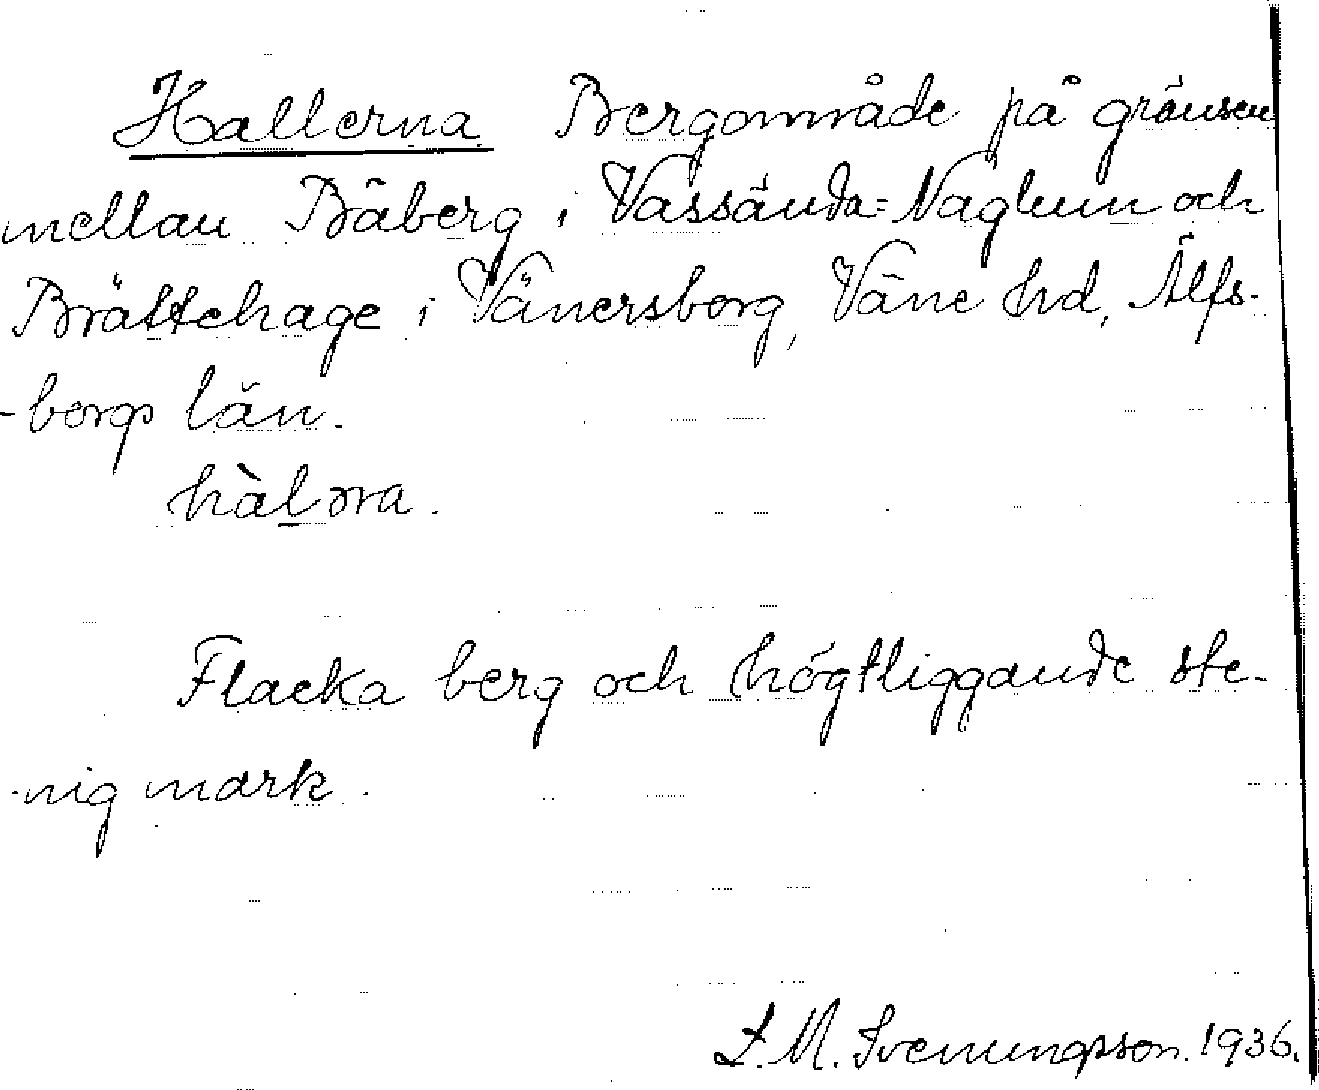 Hallerna Bergområde på gränsen
mellan Båberg i Vassända-Naglum och
Brättehage i Vänersborg, Väne hd, Älfs-
-borgs län.
hàl̠ɔra.
Flacka berg och högtliggande ste-
-nig mark.
L. M. Svenungsson. 1936.